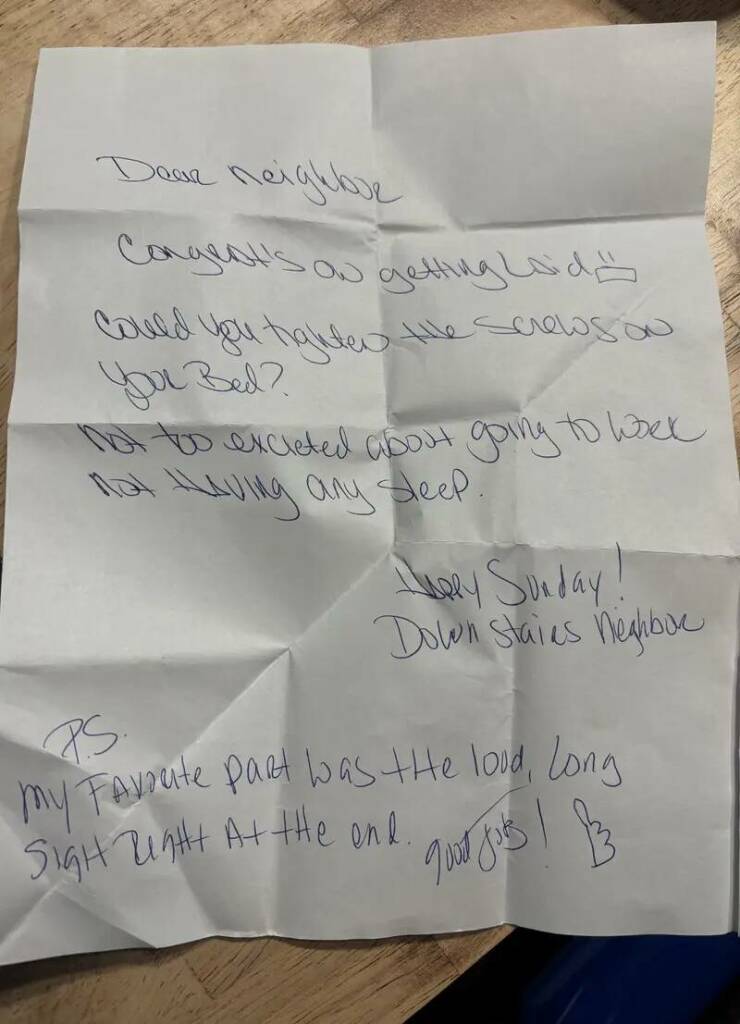 Dear neighbor
Congrats on getting Laid
Could you tighten the screws on
your Bed?
Not too excieted about going to work
not Having any sleep.
Happy Sunday!
Down stairs Nieghbor
P.S.
My Favorite part was the loud, Long
Sight Right At the end. good job!